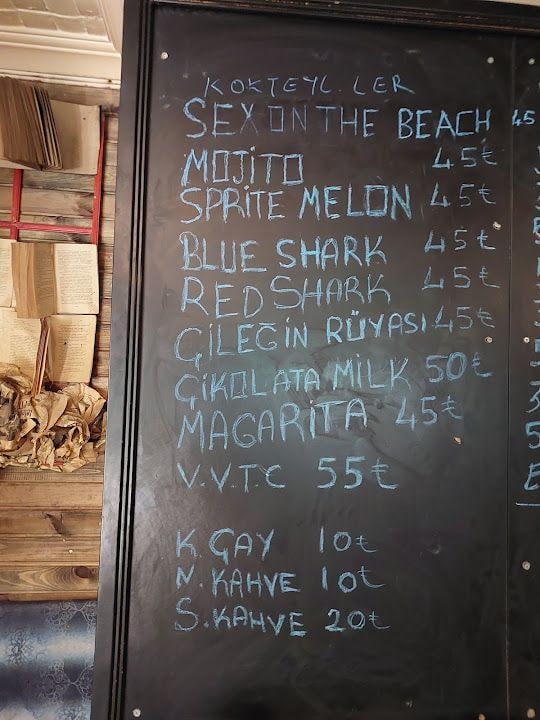 KOKTEYL.LER
SEX ON THE BEACH 45
MOJİTO 45₺
SPRİTE MELON 45₺
BLUE SHARK 45₺
RED SHARK 45₺
ÇİLEĞİN RÜYASI 45₺
ÇİKOLATA MİLK 50₺
MAGARİTA 45₺
V.V.T.C 55₺
K.ÇAY 10₺
N.KAHVE 10₺
S.KAHVE 20₺